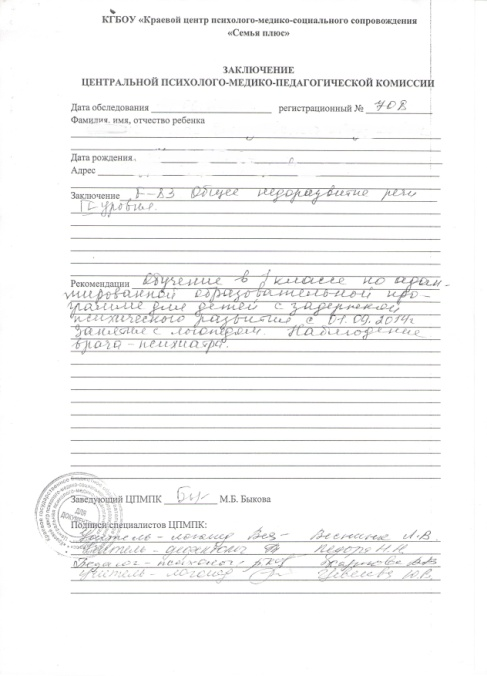 КГБОУ «Краевой центр психолого-медико-социального сопровождения
«Семья плюс»
ЗАКЛЮЧЕНИЕ
ЦЕНТРАЛЬНОЙ ПСИХОЛОГО-МЕДИКО-ПЕДАГОГИЧЕСКОЙ КОМИССИИ
Дата обследования регистрационный №
Фамилия, имя, отчество ребенка
Дата рождения
Адрес
Заключение Общее недоразвитие речи
уровня.
Рекомендации Обучение в 1 классе по адап-
тированной образовательной про-
грамме для детей с задержкой
психического развития с 01.09.2014г
Занятие с логопедом. Наблюдение
врача-психиатра.
Заведующий ЦПМПК М.Б. Быкова
Подписи специалистов ЦПМПК:
Учитель - логопед Л.В.
Учитель - дефектолог
Педагог - психолог
Учитель - логопед Ю.В.
ДЛЯ